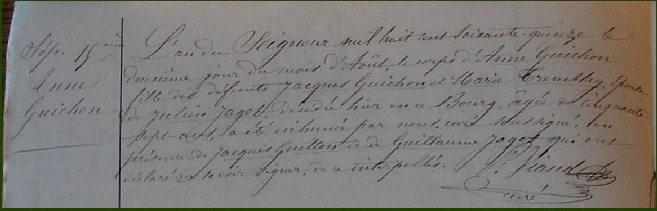 Sép. 15ème
Anne
Guichon
L'an du Seigneur mil huit cent soixante-quinze le
deuxième jour du mois d'Août, le corps d'Anne Guichon
fille des défunts Jacques Guichon et Marie Trembley, épouse
de Julien Jagot, décédée hier en ce Bourg, âgée de cinquante
sept ans a été inhumé par nous, curé soussigné, en
présence de Jacques et de Guillaume Jagot qui ont
déclaré ne savoir signer, de ce interpellés.
Viaud
curé